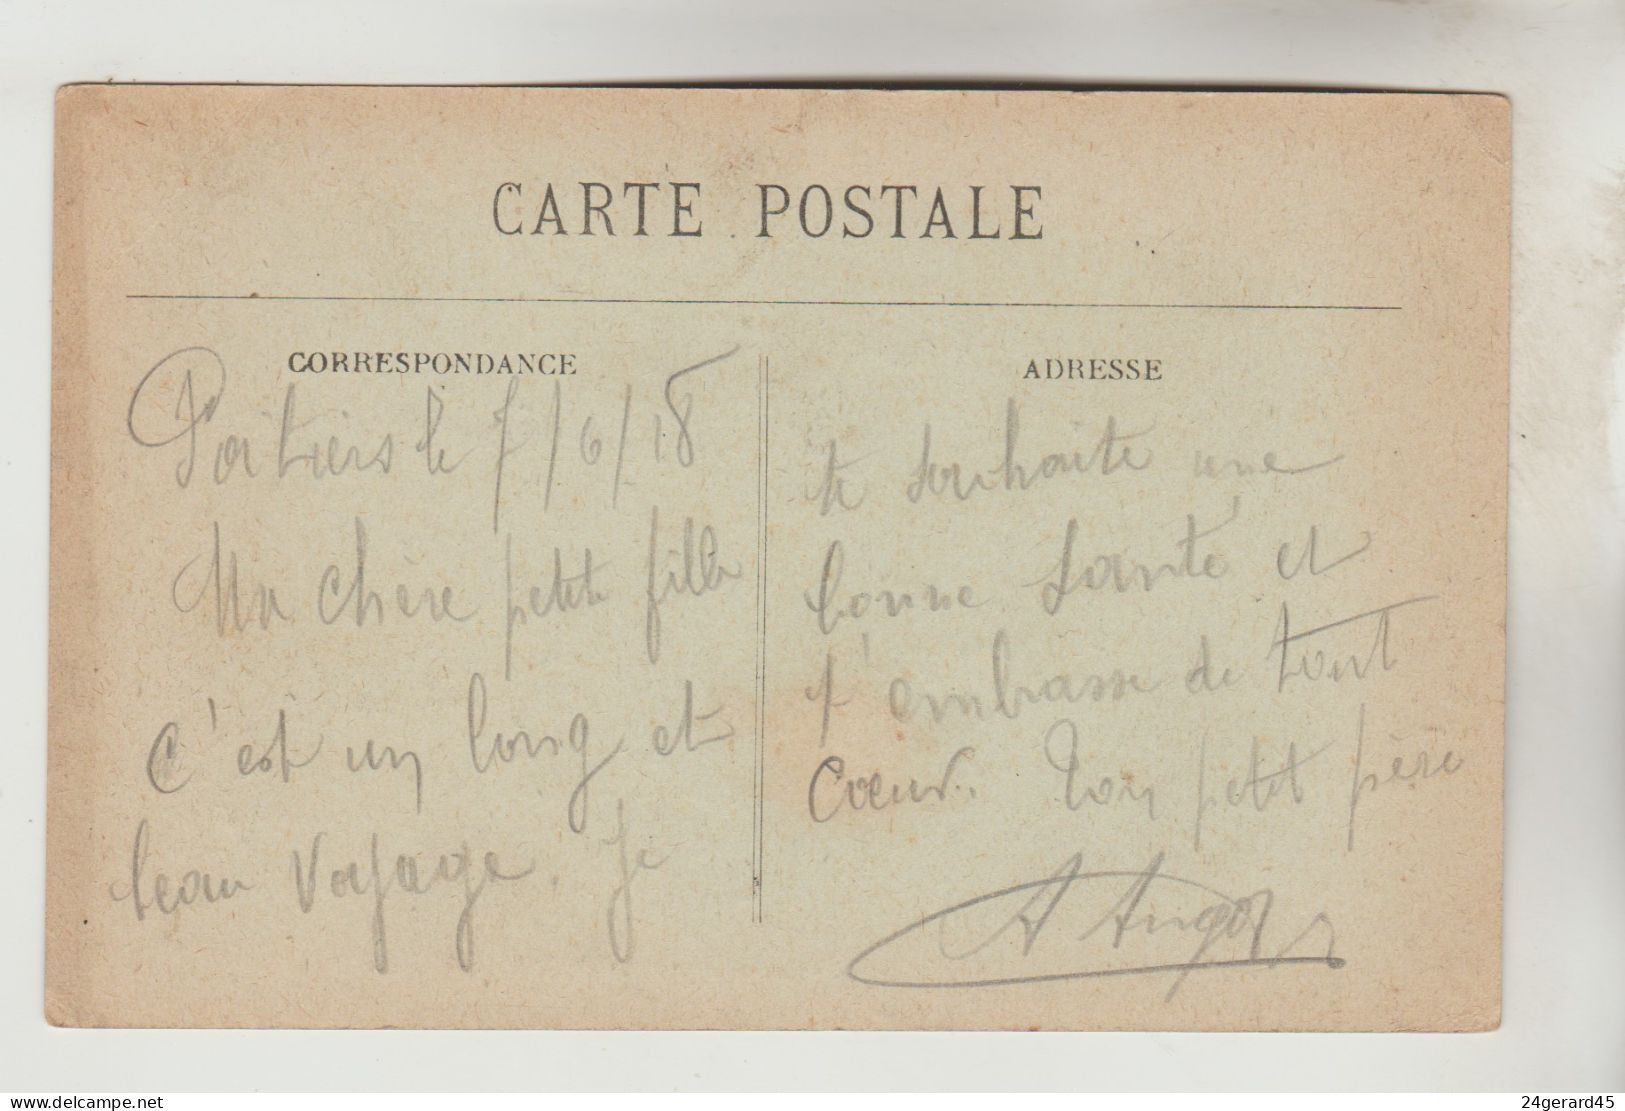 CARTE POSTALE
CORRESPONDANCE
Poitiers le 7/6/18
Ma chère petite fille
C'est un long et
beau voyage. Je
ADRESSE
te souhaite une
bonne santé et
t'embrasse de tout
Coeur. Ton petit père
A Angot
delcampe.net
24gerard45